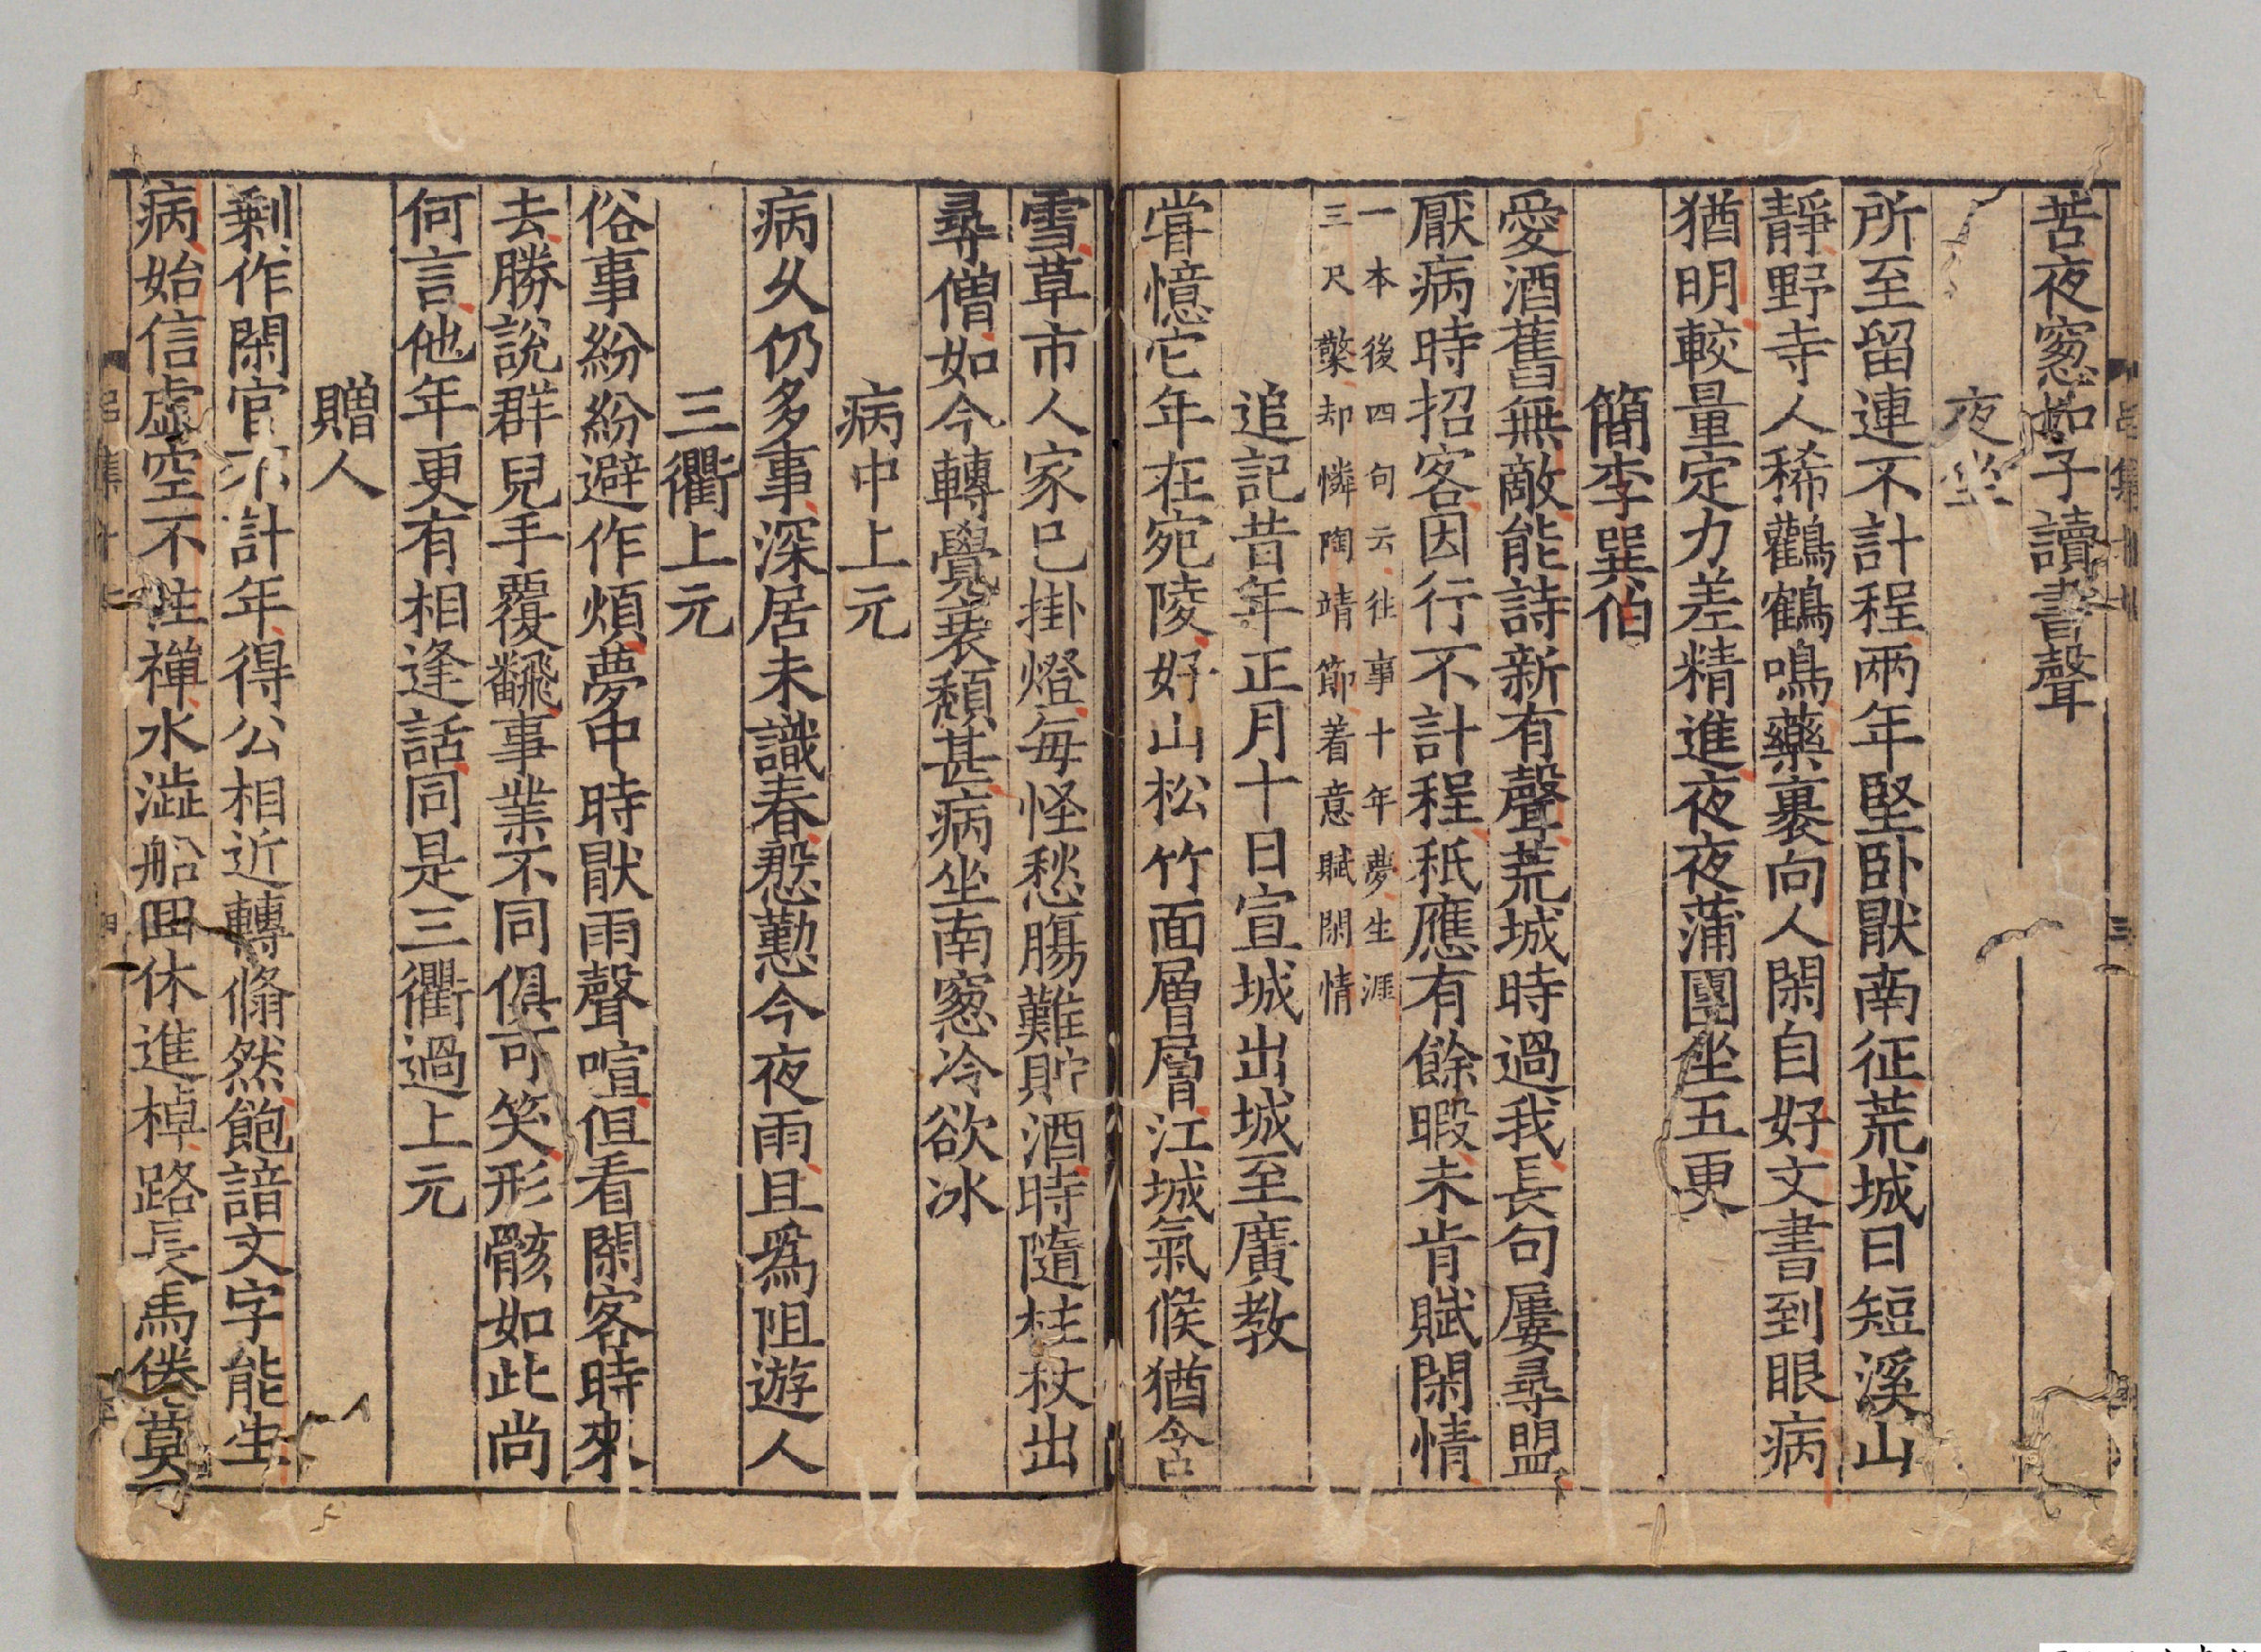 苦夜窓如子讀書聲
夜坐
所至留連不計程兩年堅卧厭南征荒城日短溪山
靜野寺人稀鸛鶴鳴藥裹向人閑自好文書到眼病
猶明較量定力差精進夜夜蒲團坐五更
簡李巽伯
愛酒舊無敵能詩新有聲荒城時過我長句屢尋盟
厭病時招客因行不計程秖應有餘暇未肯賦閑情
一本後四句云往事十年夢生涯
三尺檠却憐陶靖節着意賦閑情
追記昔年正月十日宣城出城至廣教
甞憶它年在宛陵好山松竹面層層江城氣候猶含
雪草市人家已掛燈每怪愁腸難貯酒時隨柱杖出
尋僧如今轉覺衰頹甚病坐南窓冷欲冰
病中上元
病久仍多事深居未識春慇懃今夜雨且爲阻遊人
三衢上元
俗事紛紛避作煩夢中時厭雨聲喧但看閑客時來
去勝說群兒手覆飜事業不同俱可笑形骸如此尚
何言他年更有相逢話同是三衢過上元
贈人
剩作閑官不計年得公相近轉翛然飽諳文字能生
病始信虛空不性禪水澁船回休進棹路長馬倦莫